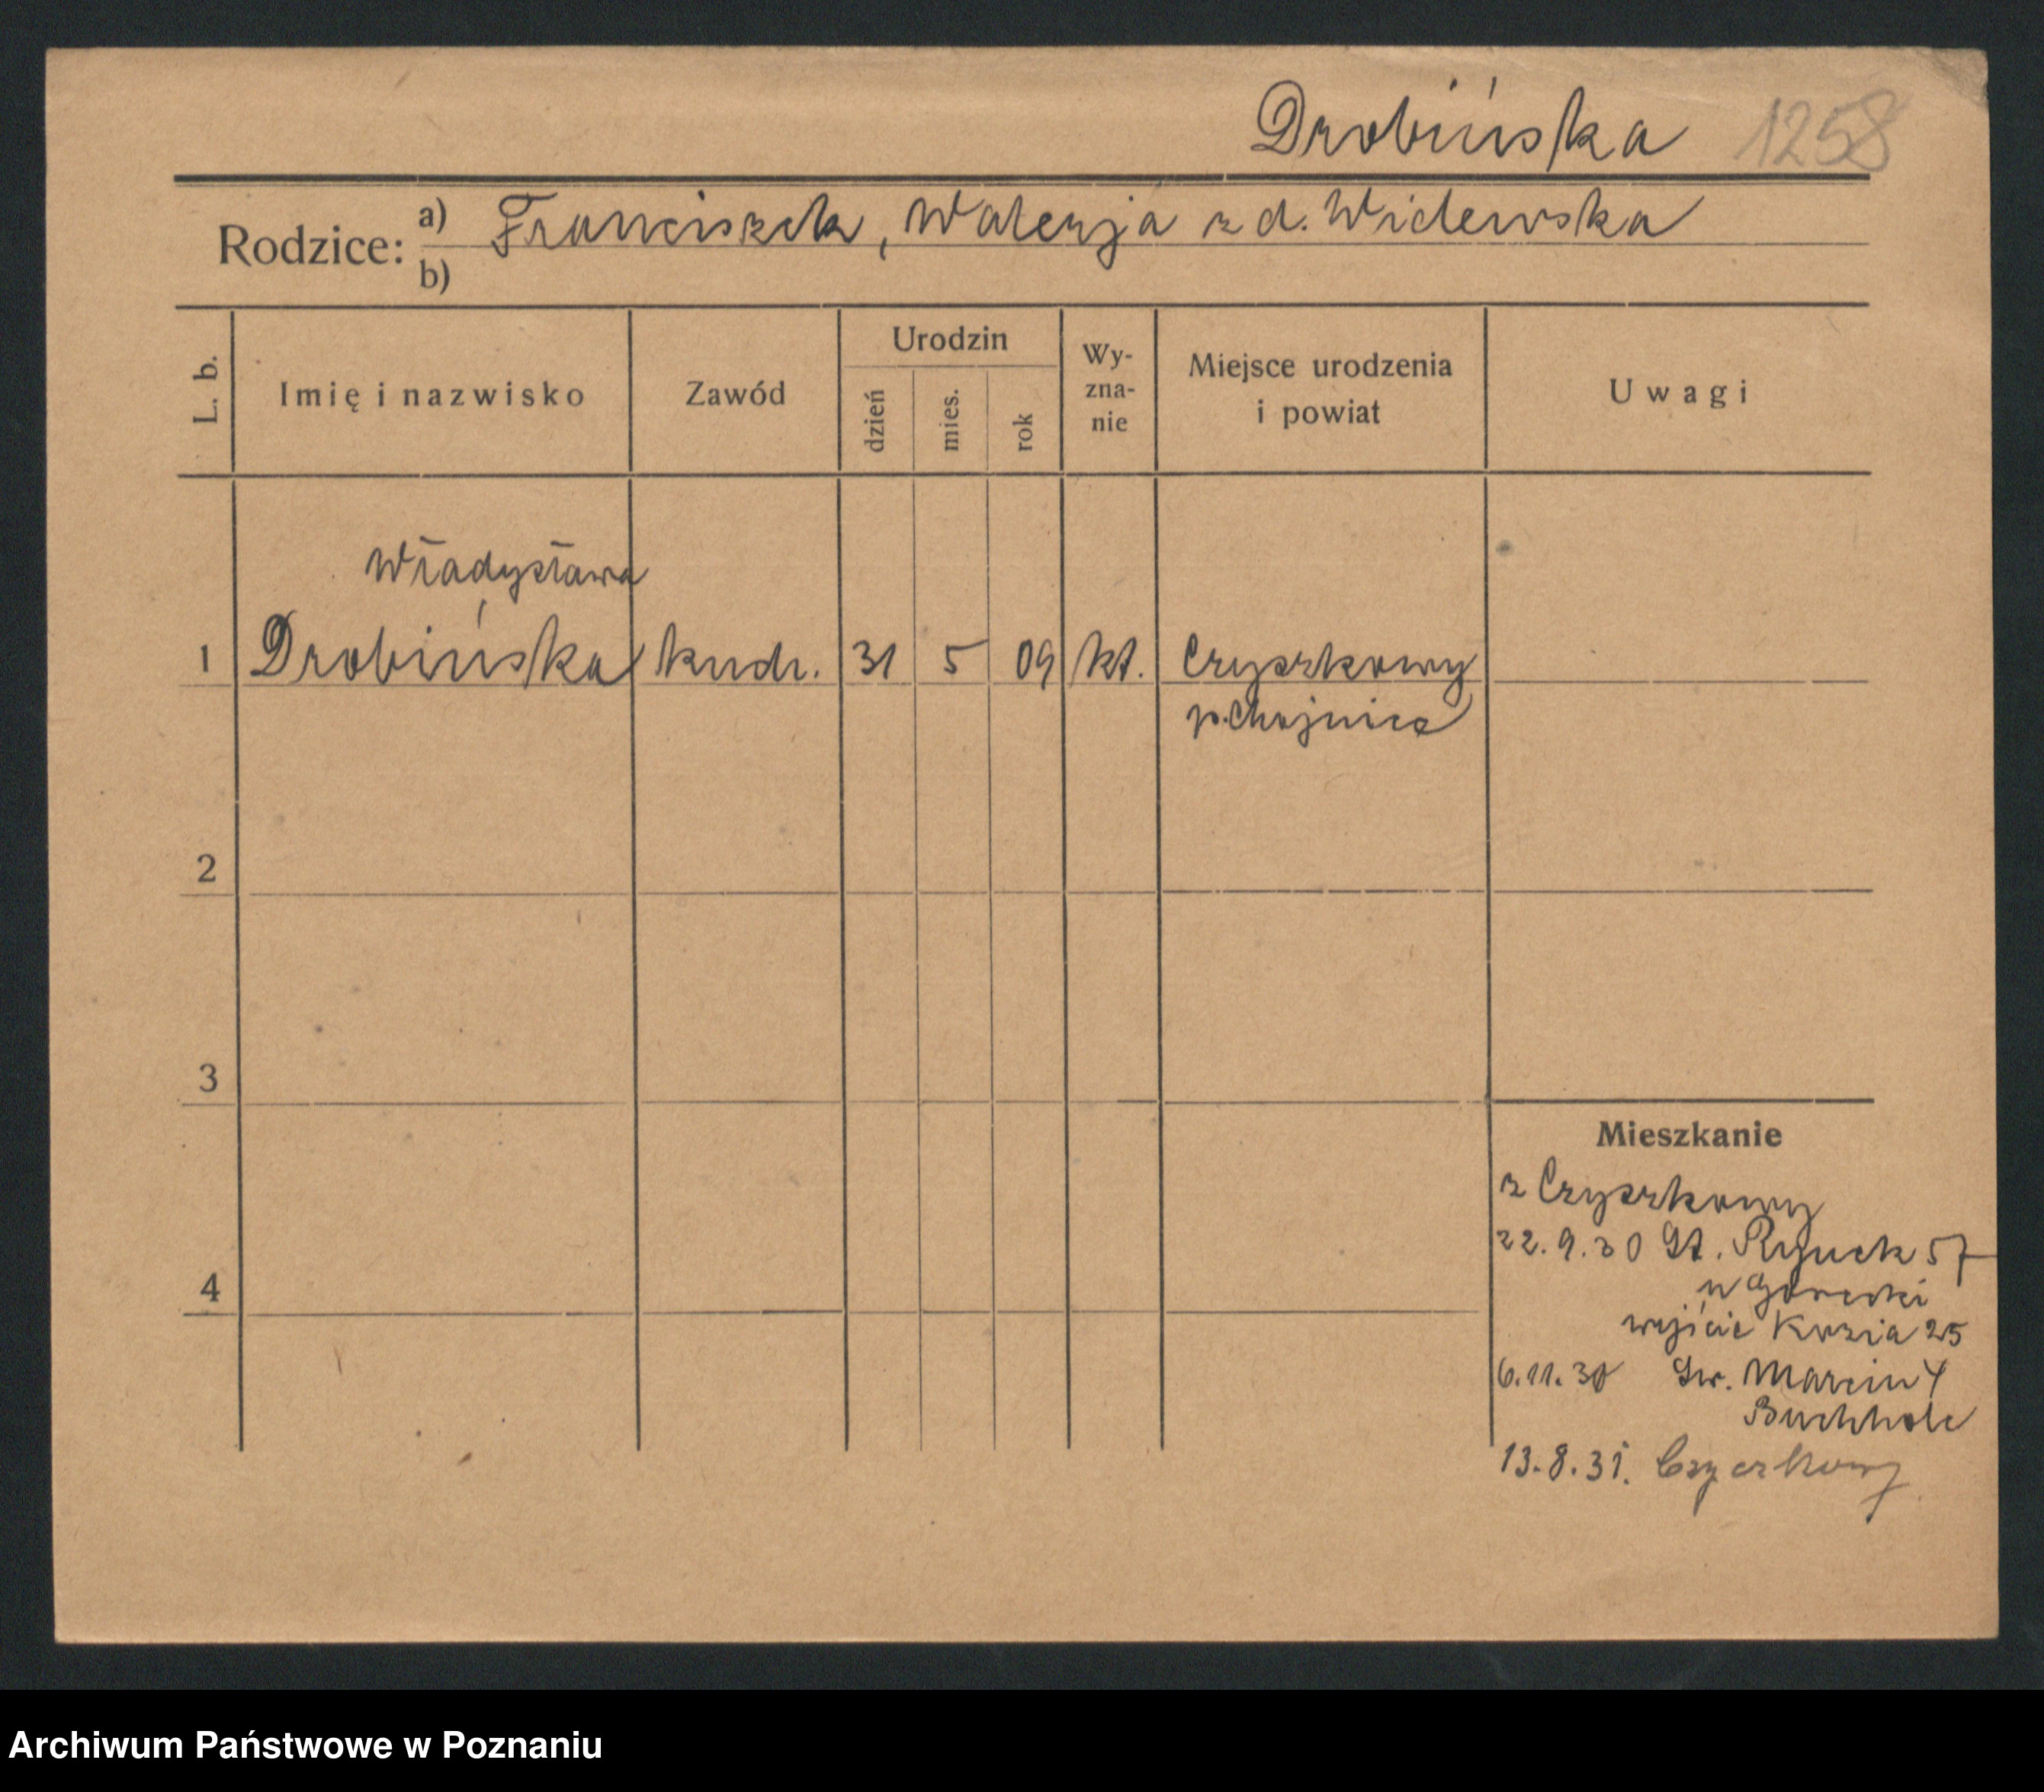 Drobińska 1258
Rodzice: a) Franciszek, Walerja z d. Widewska
b)
L. b.
Imię i nazwisko
Zawód
Urodzin
dzień
mies.
rok
Wy-
zna-
nie
Miejsce urodzenia
i powiat
Uwagi
Władysława
1 Drobińska kudr. 31 5 09 kt. Czyszkowy
p. Chojnice
2
3
4
Mieszkanie
z Czyszkowy
22.9.30 St. Rynek 57
u Górecki
wejście Kozia 25
6.11.30 Św. Marcin 4
Buchholc
13.8.31. Czyszkowy
Archiwum Państwowe w Poznaniu